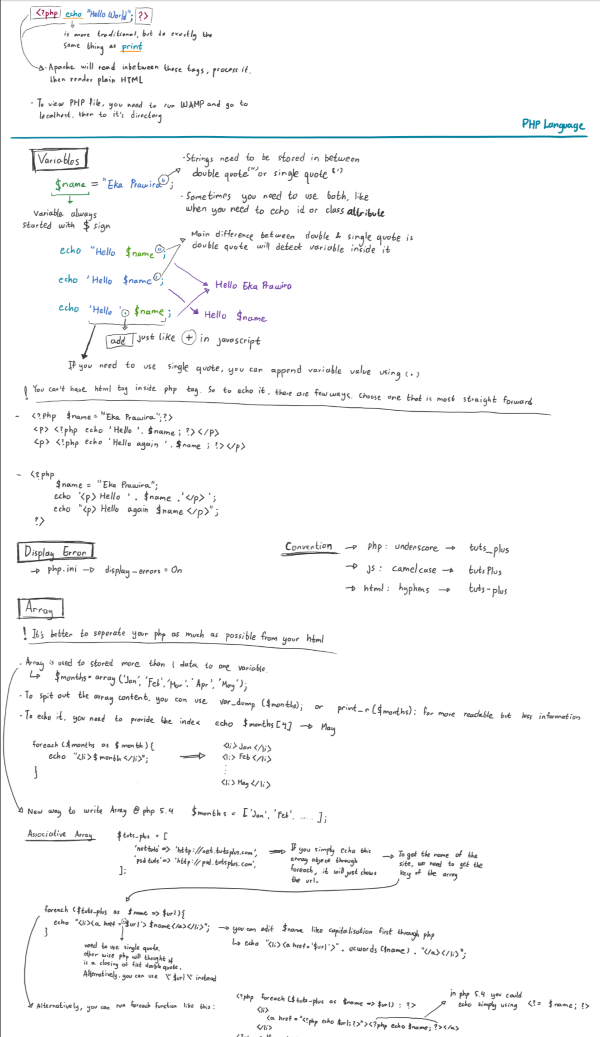 <?php echo "Hello World"; ?>
is more traditional, but do exactly the
same thing as print
Apache will read inbetween these tags, process it.
then render plain HTML
- To view PHP file, you need to run WAMP and go to
localhost, then to it's directory
PHP Language
Variables
$name = "Eka Prawira";
Variable always
started with $ sign
- Strings need to be stored in between
double quote (") or single quote (')
- Sometimes you need to use both, like
when you need to echo id or class attribute
Main difference between double & single quote is
double quote will detect variable inside it
echo "Hello $name";
echo 'Hello $name';
echo 'Hello '. $name;
Hello Eka Prawira
Hello $name
add just like + in javascript
If you need to use single quote, you can append variable value using (.)
! You can't have html tag inside php tag. So to echo it, there are few ways. Choose one that is most straight forward.
- <?php $name = "Eka Prawira"; ?>
<p> <?php echo 'Hello '. $name; ?> </p>
<p> <?php echo 'Hello again '. $name; ?> </p>
- <?php
$name = "Eka Prawira";
echo '<p> Hello '. $name .'</p>';
echo "<p> Hello again $name </p>";
?>
Display Error
→ php.ini → display_errors = On
Convention → php: underscore → tuts_plus
→ js: camelcase → tutsPlus
→ html: hyphens → tuts-plus
Array
! It's better to seperate your php as much as possible from your html
- Array is used to stored more than 1 data to one variable.
↳ $months = array ('Jan', 'Feb', 'Mar', 'Apr', 'May');
- To spit out the array content, you can use var_dump ($months); or print_r ($months); for more readable but less information
- To echo it, you need to provide the index echo $months[4] → May
foreach ($months as $month) {
echo "<li> $month </li>";
}
<li> Jan </li>
<li> Feb </li>
⋮
<li> May </li>
New way to write Array @ php 5.4 $months = ['Jan', 'Feb', .....];
Associative Array $tuts_plus = [
'nettuts' => 'http://net.tutsplus.com',
'psdtuts' => 'http://psd.tutsplus.com',
];
If you simply echo this
array object through
foreach, it will just shows
the url.
To get the name of the
site, we need to get the
key of the array
foreach ($tuts_plus as $name => $url) {
echo "<li><a href='$url'> $name</a></li>";
}
need to use single quote,
other wise php will thought it
is a closing of first double quote.
Alternatively, you can use \"$url\" instead
→ you can edit $name like capitalisation first through php
↳ echo "<li><a href='$url'>" . ucwords ($name) . "</a></li>";
Alternatively, you can run foreach function like this:
<?php foreach ($tuts_plus as $name => $url) : ?>
<li>
<a href="<?php echo $url; ?>"><?php echo $name; ?></a>
</li>
in php 5.4 you could
echo simply using <?= $name; ?>